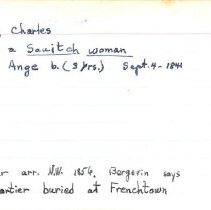 , Charles
a Sauitch woman
Ange b. (3 yrs.) Sept. 4 - 1841
r arr. N.W. 1856. Bergevin says
artier buried at Frenchtown